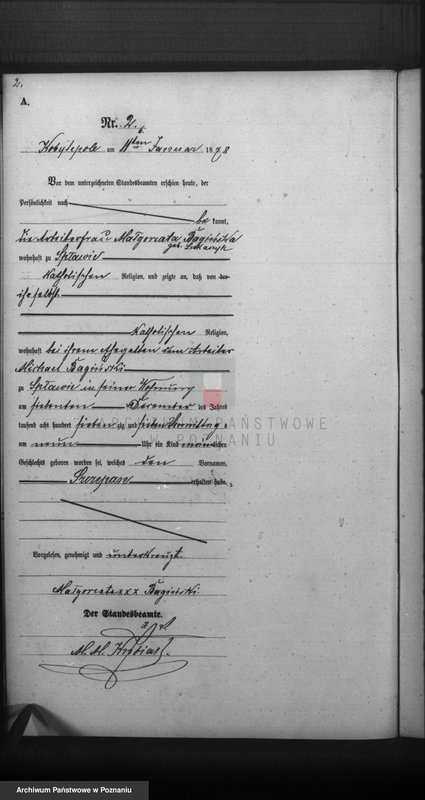 2.
A.
Nr. 2.
Kobylepole am 11ten Januar 1878
Vor dem unterzeichneten Standesbeamten erschien heute, der
Persönlichkeit nach
be kannt,
die Arbeiterfrau Małgorzata Bagińska
geb.
wohnhaft zu Spławie
Katholischen Religion, und zeigte an, daß von der
ihr selbst
Katholischen Religion,
wohnhaft bei ihrem Ehegatten dem Arbeiter
Michael Bagiński
zu Spławie in seiner Wohnung
am siebenten Dezember des Jahres
tausend acht hundert sieben zig und sieben Vormittag
um neun Uhr ein Kind männlichen
Geschlechts geboren worden sei, welches den Vornamen,
Szczepan erhalten habe.
Vorgelesen, genehmigt und unterkreuzt.
Małgorzata xxx Bagiński
Der Standesbeamte.
ARCHIWUM PAŃSTWOWE
W POZNANIU
Archiwum Państwowe w Poznaniu